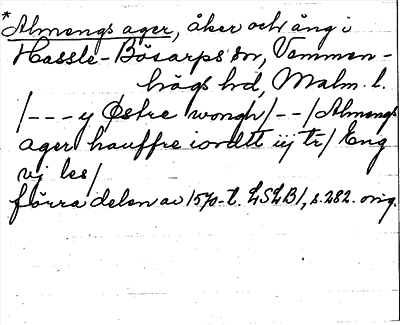 *Almengs ager, åker och äng i
Hassle-Bösarps sn, Vemmen-
högs hd, Malm. l.
/---y Østre wongh/--/Almengs
ager hauffre iordtt iij tr/ Eng
vj les/
förra delen av 1570-t. LSLB1, s.282. orig.